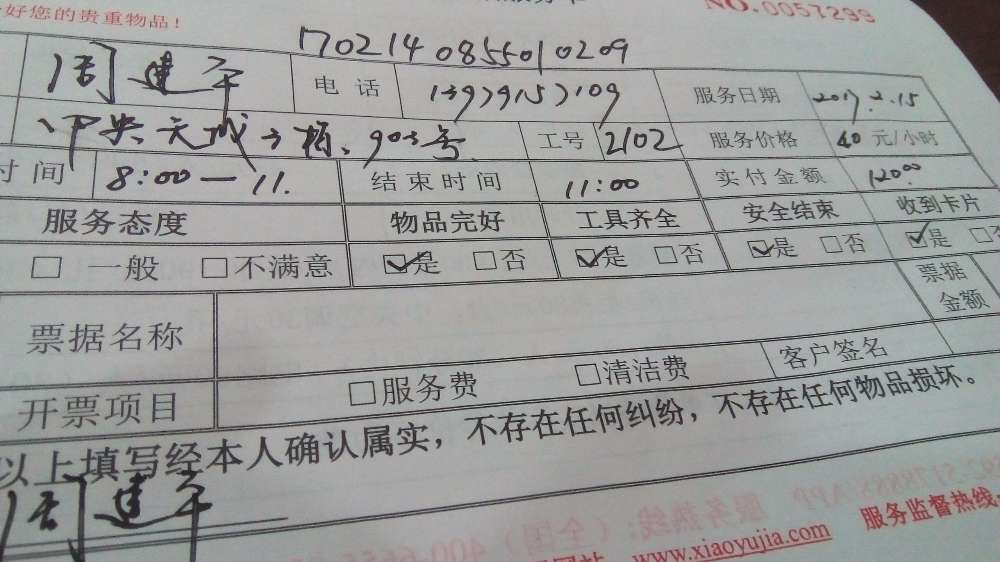 好您的贵重物品！ NO.0057299
170214085501 0209
周建平 电话 13979157109 服务日期 2017.2.15
中央天城3栋、903号 工号 2102 服务价格 40 元/小时
时间 8:00—11. 结束时间 11:00 实付金额 120.00
服务态度 物品完好 工具齐全 安全结束 收到卡片
□ 一般 □不满意 ☑是 □否 ☑是 □否 ☑是 □否 ☑是
票据名称 票据金额
开票项目 □服务费 □清洁费 客户签名
以上填写经本人确认属实，不存在任何纠纷，不存在任何物品损坏。
周建平
www.xiaoyujia.com 服务监督热线